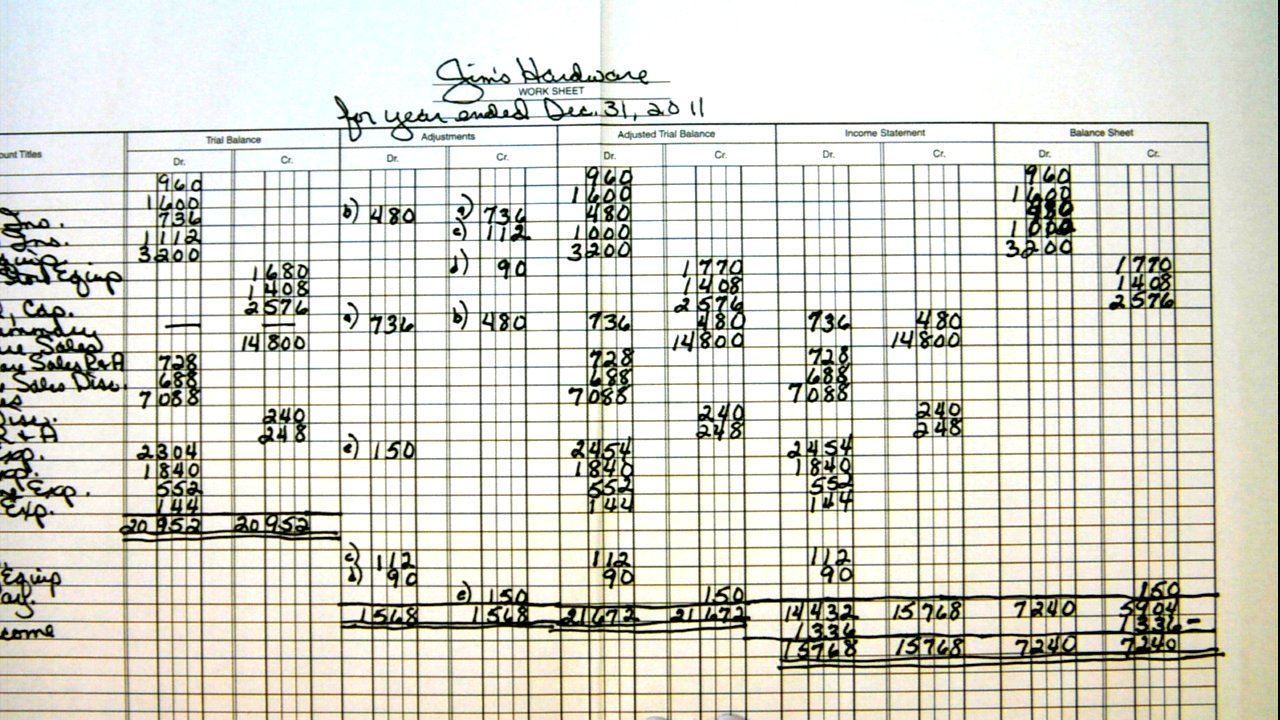 Jim's Hardware
WORK SHEET
for year ended Dec. 31, 2011
ount Titles Trial Balance Adjustments Adjusted Trial Balance Income Statement Balance Sheet
Dr. Cr. Dr. Cr. Dr. Cr. Dr. Cr. Dr. Cr.
960 960 960
1600 1600 1600
Ins. 736 b) 480 a) 736 480 480
Ins. 1112 c) 112 1000 1000
Equip. 3200 3200 3200
Store Equip 1680 d) 90 1770 1770
1408 1408 1408
Cap. 2576 2576 2576
mmary — — a) 736 b) 480 736 480 736 480
Sales 14800 14800 14800
Sales R+A 728 728 728
Sales Disc. 688 688 688
7088 7088 7088
Disc. 240 240 240
R + A 248 248 248
Exp. 2304 e) 150 2454 2454
Exp. 1840 1840 1840
Exp. 552 552 552
Exp. 144 144 144
20952 20952
c) 112 112 112
Equip d) 90 90 90
Pay. e) 150 150 150
1568 1568 21672 21672 14432 15768 7240 5904
come 1336 1336 –
15768 15768 7240 7240